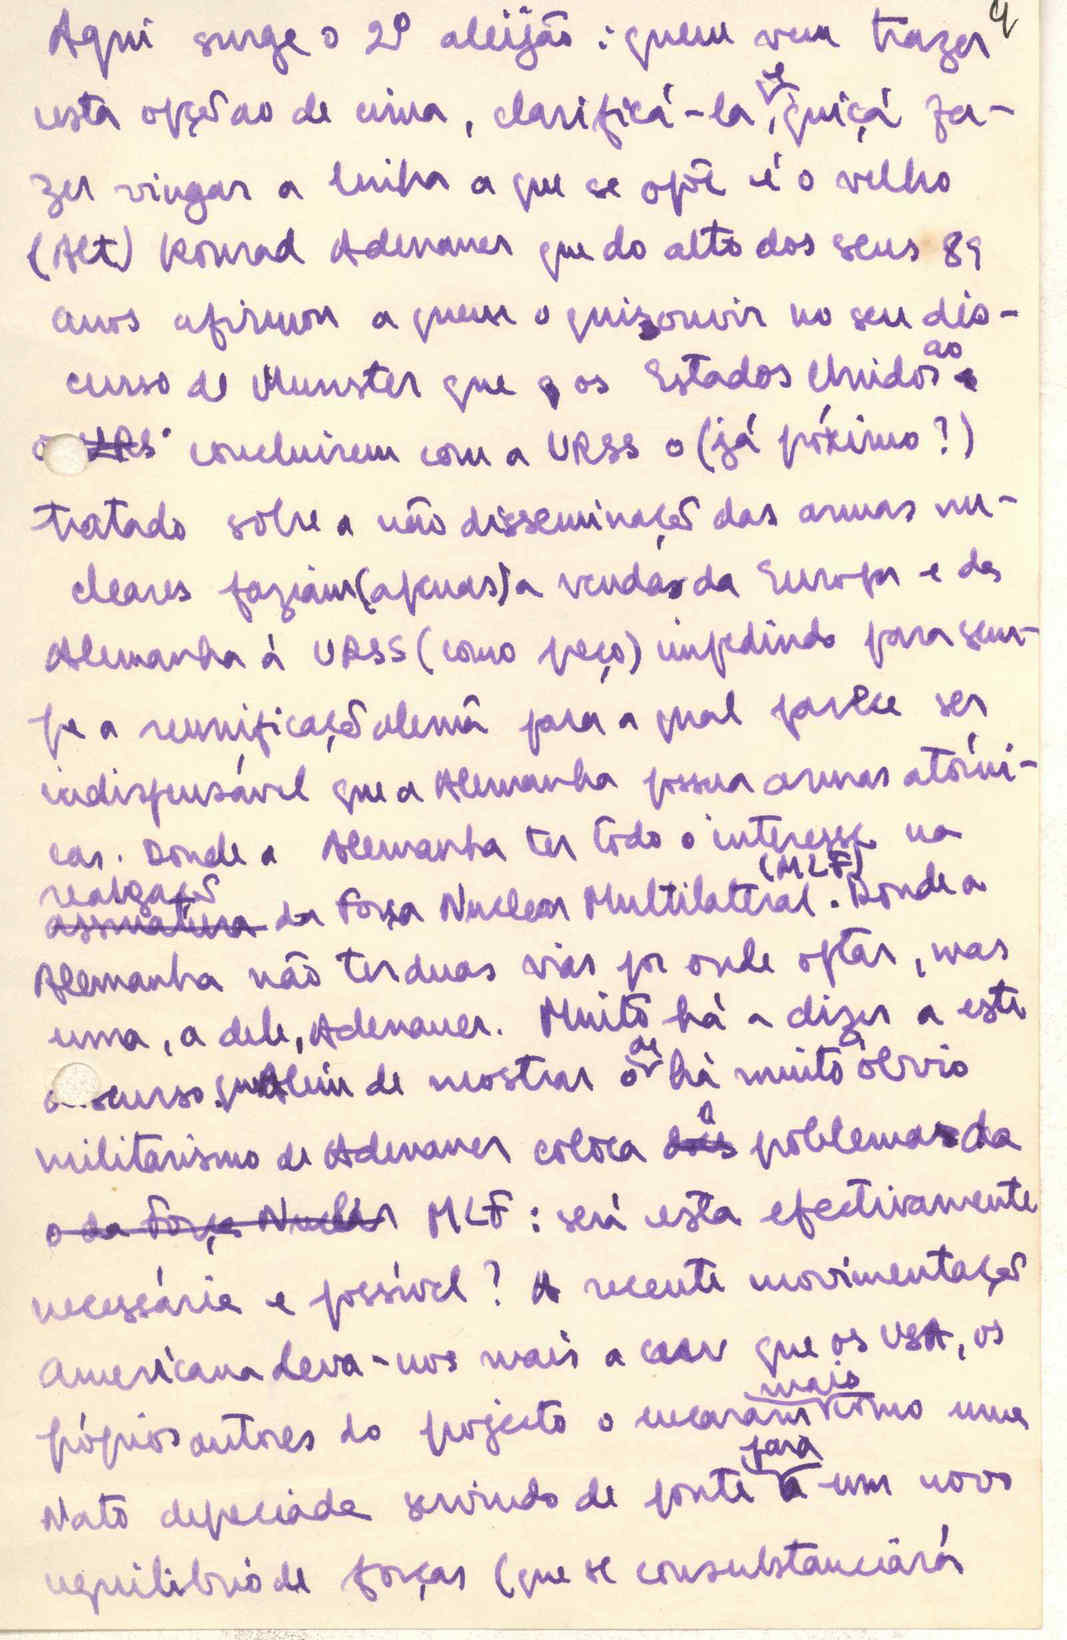 4
Aqui surge o 2º aleijão: quem vem trazer
esta opção ao de cima, clarificá-la, e quiçá fa-
zer vingar a linha a que se opõe é o velho
(Alt) Konrad Adenauer que do alto dos seus 89
anos afirmou a quem o quis ouvir no seu dis-
curso de Munster que os Estados Unidos ao
concluirem com a URSS o (já próximo?)
tratado sobre a não disseminação das armas nu-
cleares faziam (apenas) a venda da Europa e da
Alemanha à URSS (como peço) impedindo para sem-
pre a reunificação alemã para a qual parece ser
indispensável que a Alemanha possua armas atómi-
cas. Donde a Alemanha ter todo o interesse na
realização
assinatura da Força Nuclear Multilateral (MLF). Donde a
Alemanha não ter duas vias por onde optar, mas
uma, a dele, Adenauer. Muito há a dizer a este
discurso que além de mostrar o de há muito óbvio
militarismo de Adenauer coloca dois o problema da
o da Força Nuclear MLF: será esta efectivamente
necessária e possível? A recente movimentação
Americana leva-nos mais a que os USA, os
próprios autores do projecto o encaram mais como uma
Nato depreciada servindo de ponte para um novo
equilibrio de forças (que se consubstanciará